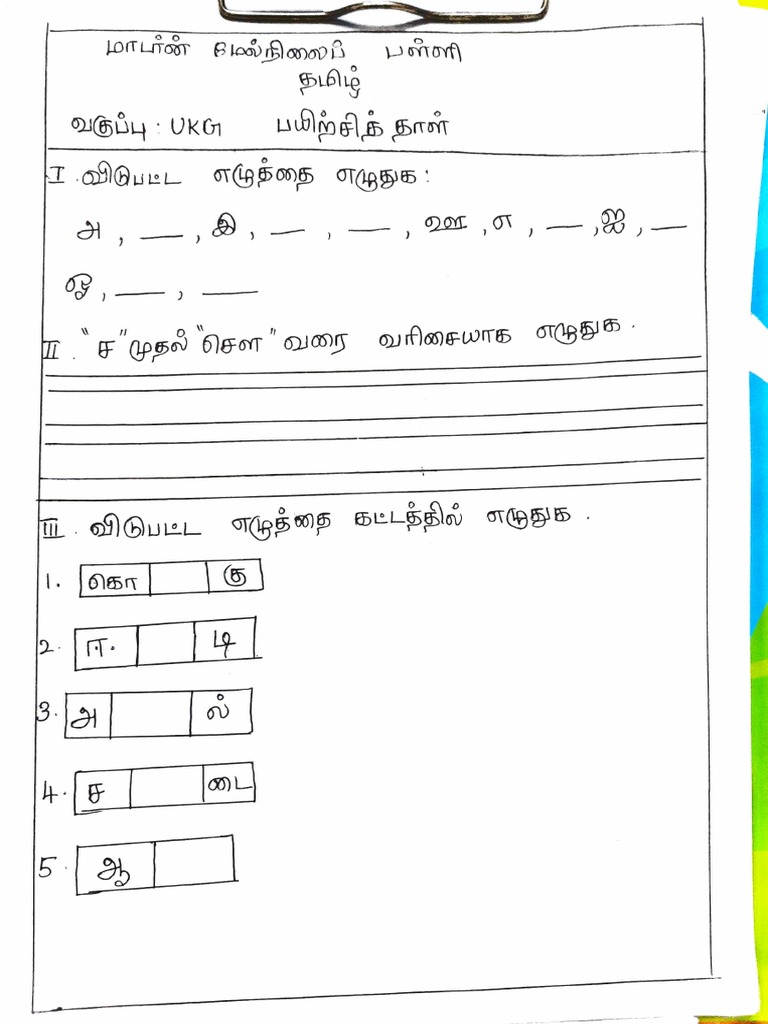 மாடர்ன் மேல்நிலைப் பள்ளி
தமிழ்
வகுப்பு : UKG பயிற்சித் தாள்
I . விடுபட்ட எழுத்தை எழுதுக :
அ , __ , இ , __ , __ , ஊ , எ , __ , ஐ , __
ஓ , __ , __
II . "ச" முதல் "சௌ" வரை வரிசையாக எழுதுக .
III . விடுபட்ட எழுத்தை கட்டத்தில் எழுதுக .
1. கொ கு
2. ஈ டி
3. அ ல்
4. ச டை
5. ஆ